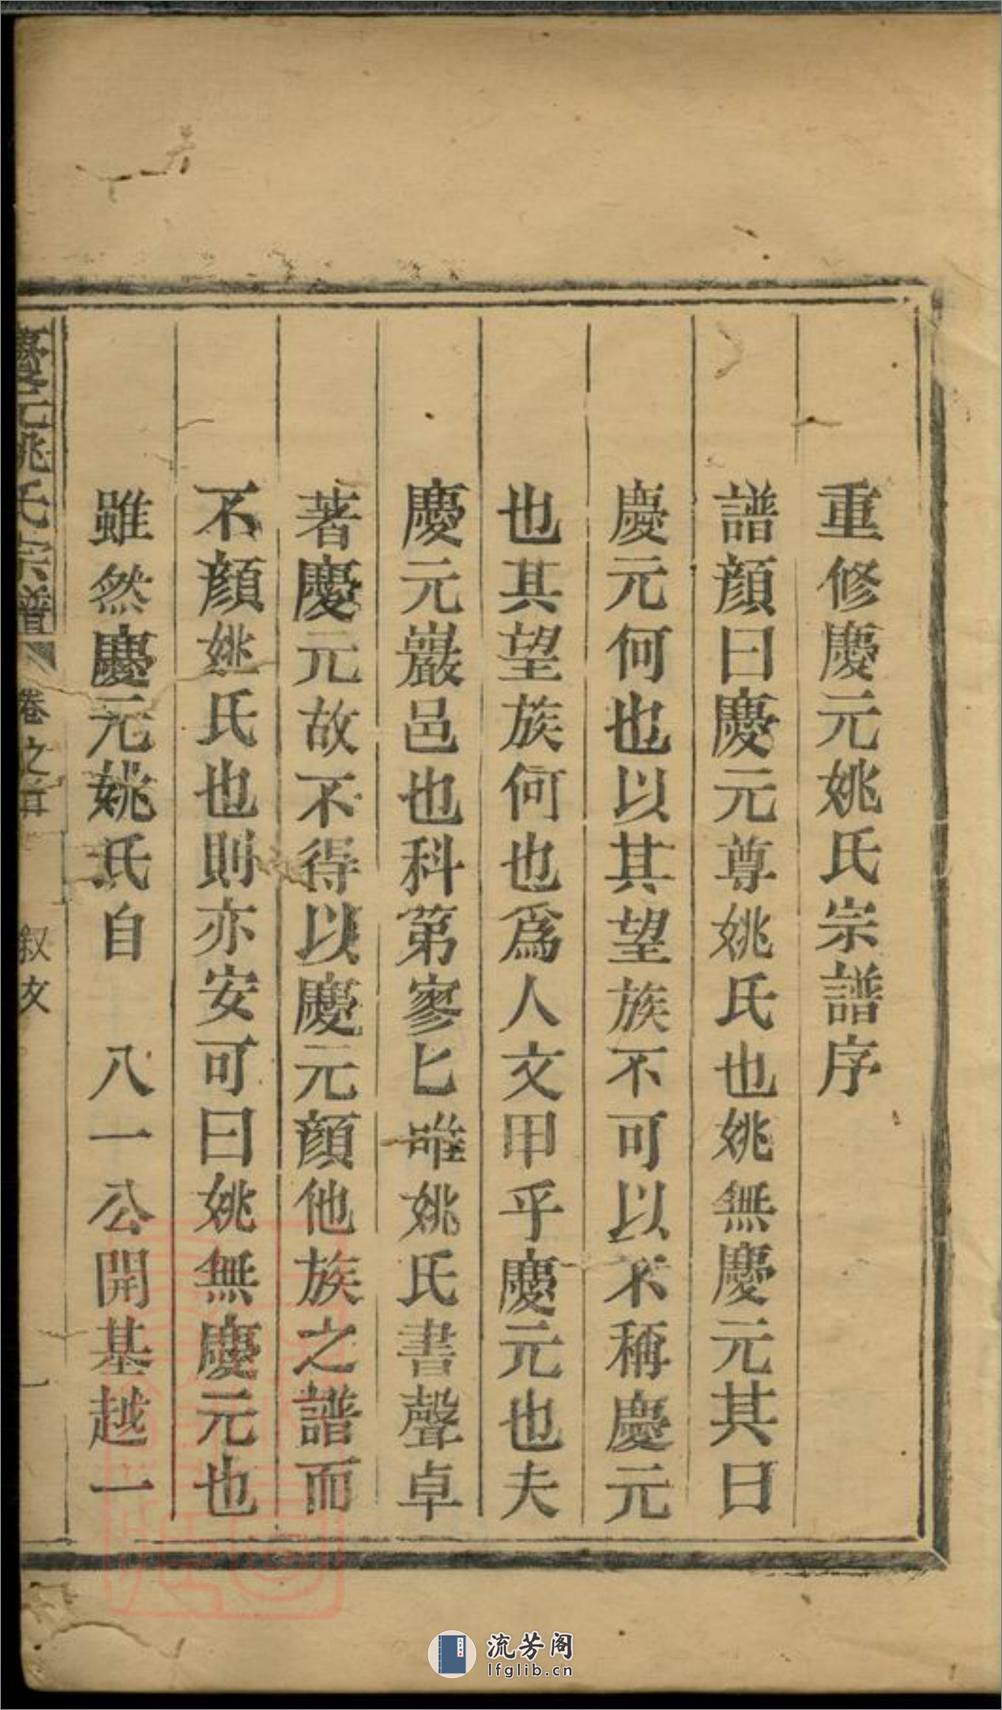 重修慶元姚氏宗譜序
譜顏曰慶元尊姚氏也姚無慶元其曰
慶元何也以其望族不可以不稱慶元
也其望族何也爲人文甲乎慶元也夫
慶元巖邑也科第寥匕唯姚氏書聲卓
著慶元故不得以慶元顏他族之譜而
不顏姚氏也則亦安可曰姚無慶元也
雖然慶元姚氏自 八一公開基越一
慶元姚氏宗譜 卷之首 叙文 一
流芳阁
lfglib.cn